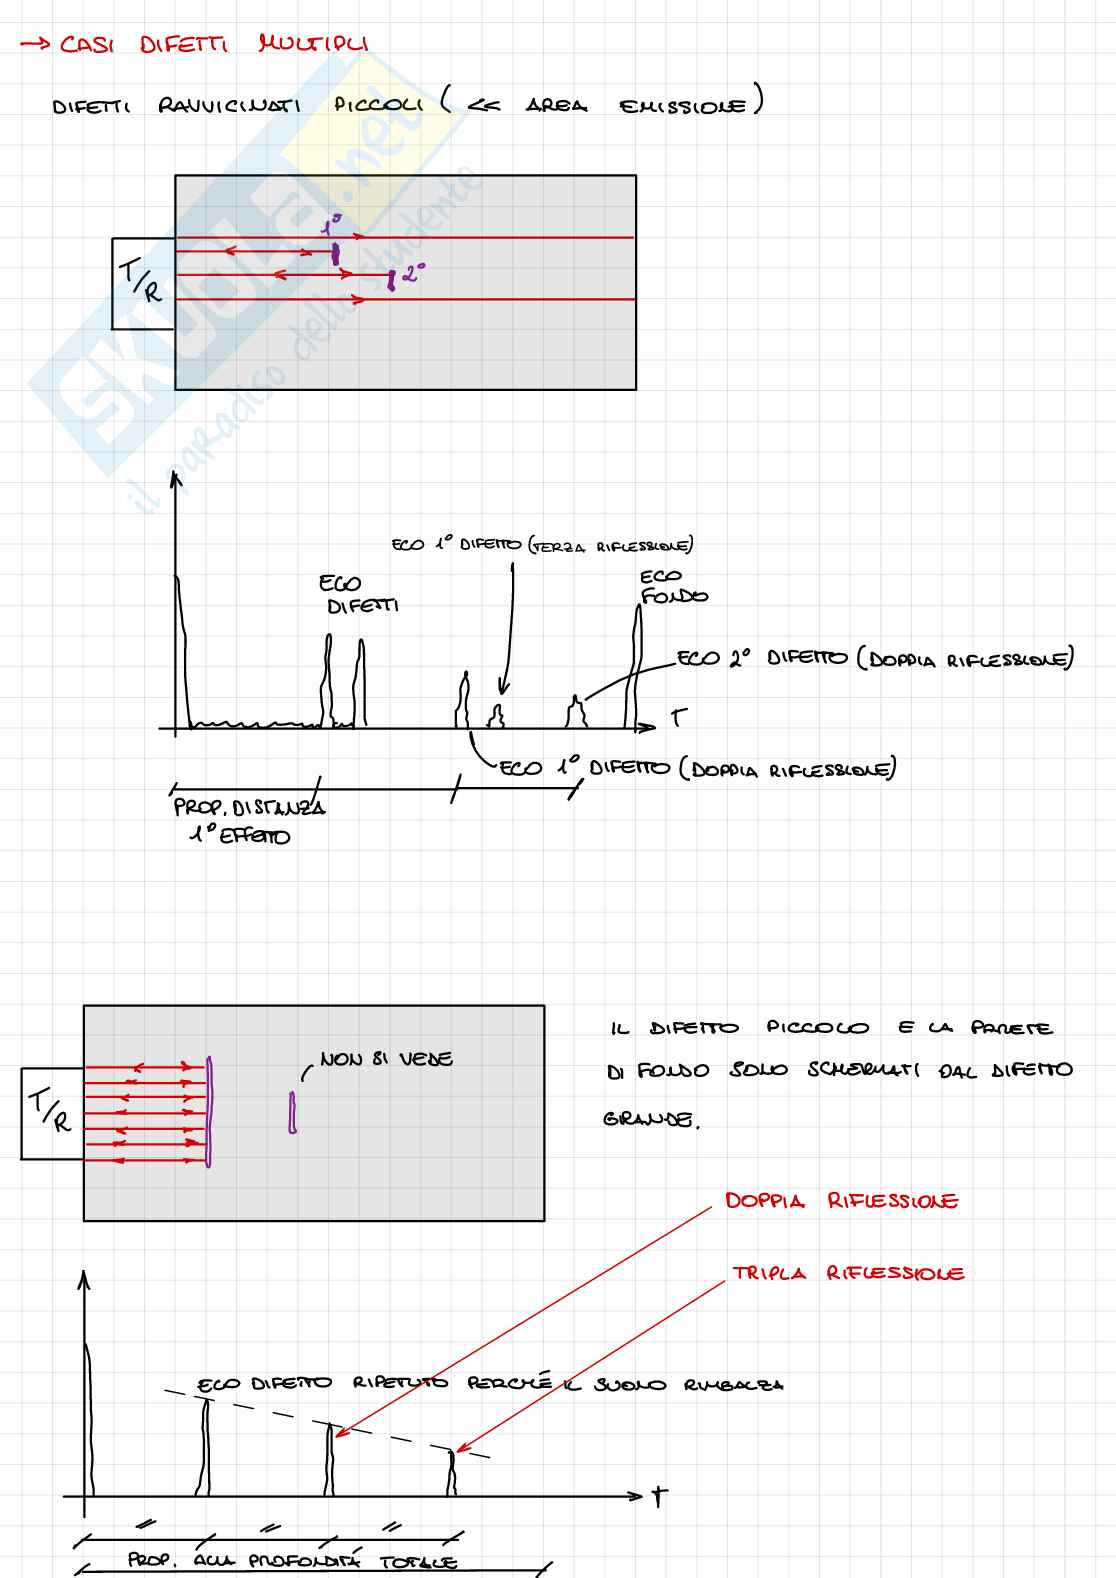 → CASI DIFETTI MULTIPLI
DIFETTI RAVVICINATI PICCOLI ( << AREA EMISSIONE )
SKUOLA.net
il paradiso dello studente
1°
2°
T/R
ECO 1° DIFETTO (TERZA RIFLESSIONE)
ECO
DIFETTI
ECO
FONDO
ECO 2° DIFETTO (DOPPIA RIFLESSIONE)
T
ECO 1° DIFETTO (DOPPIA RIFLESSIONE)
PROP. DISTANZA
1° EFFETTO
NON SI VEDE
T/R
IL DIFETTO PICCOLO E LA PARETE
DI FONDO SONO SCHERMATI DAL DIFETTO
GRANDE.
DOPPIA RIFLESSIONE
TRIPLA RIFLESSIONE
ECO DIFETTO RIPETUTO PERCHÉ IL SUONO RIMBALZA
T
PROP. ALLA PROFONDITÁ TOTALE